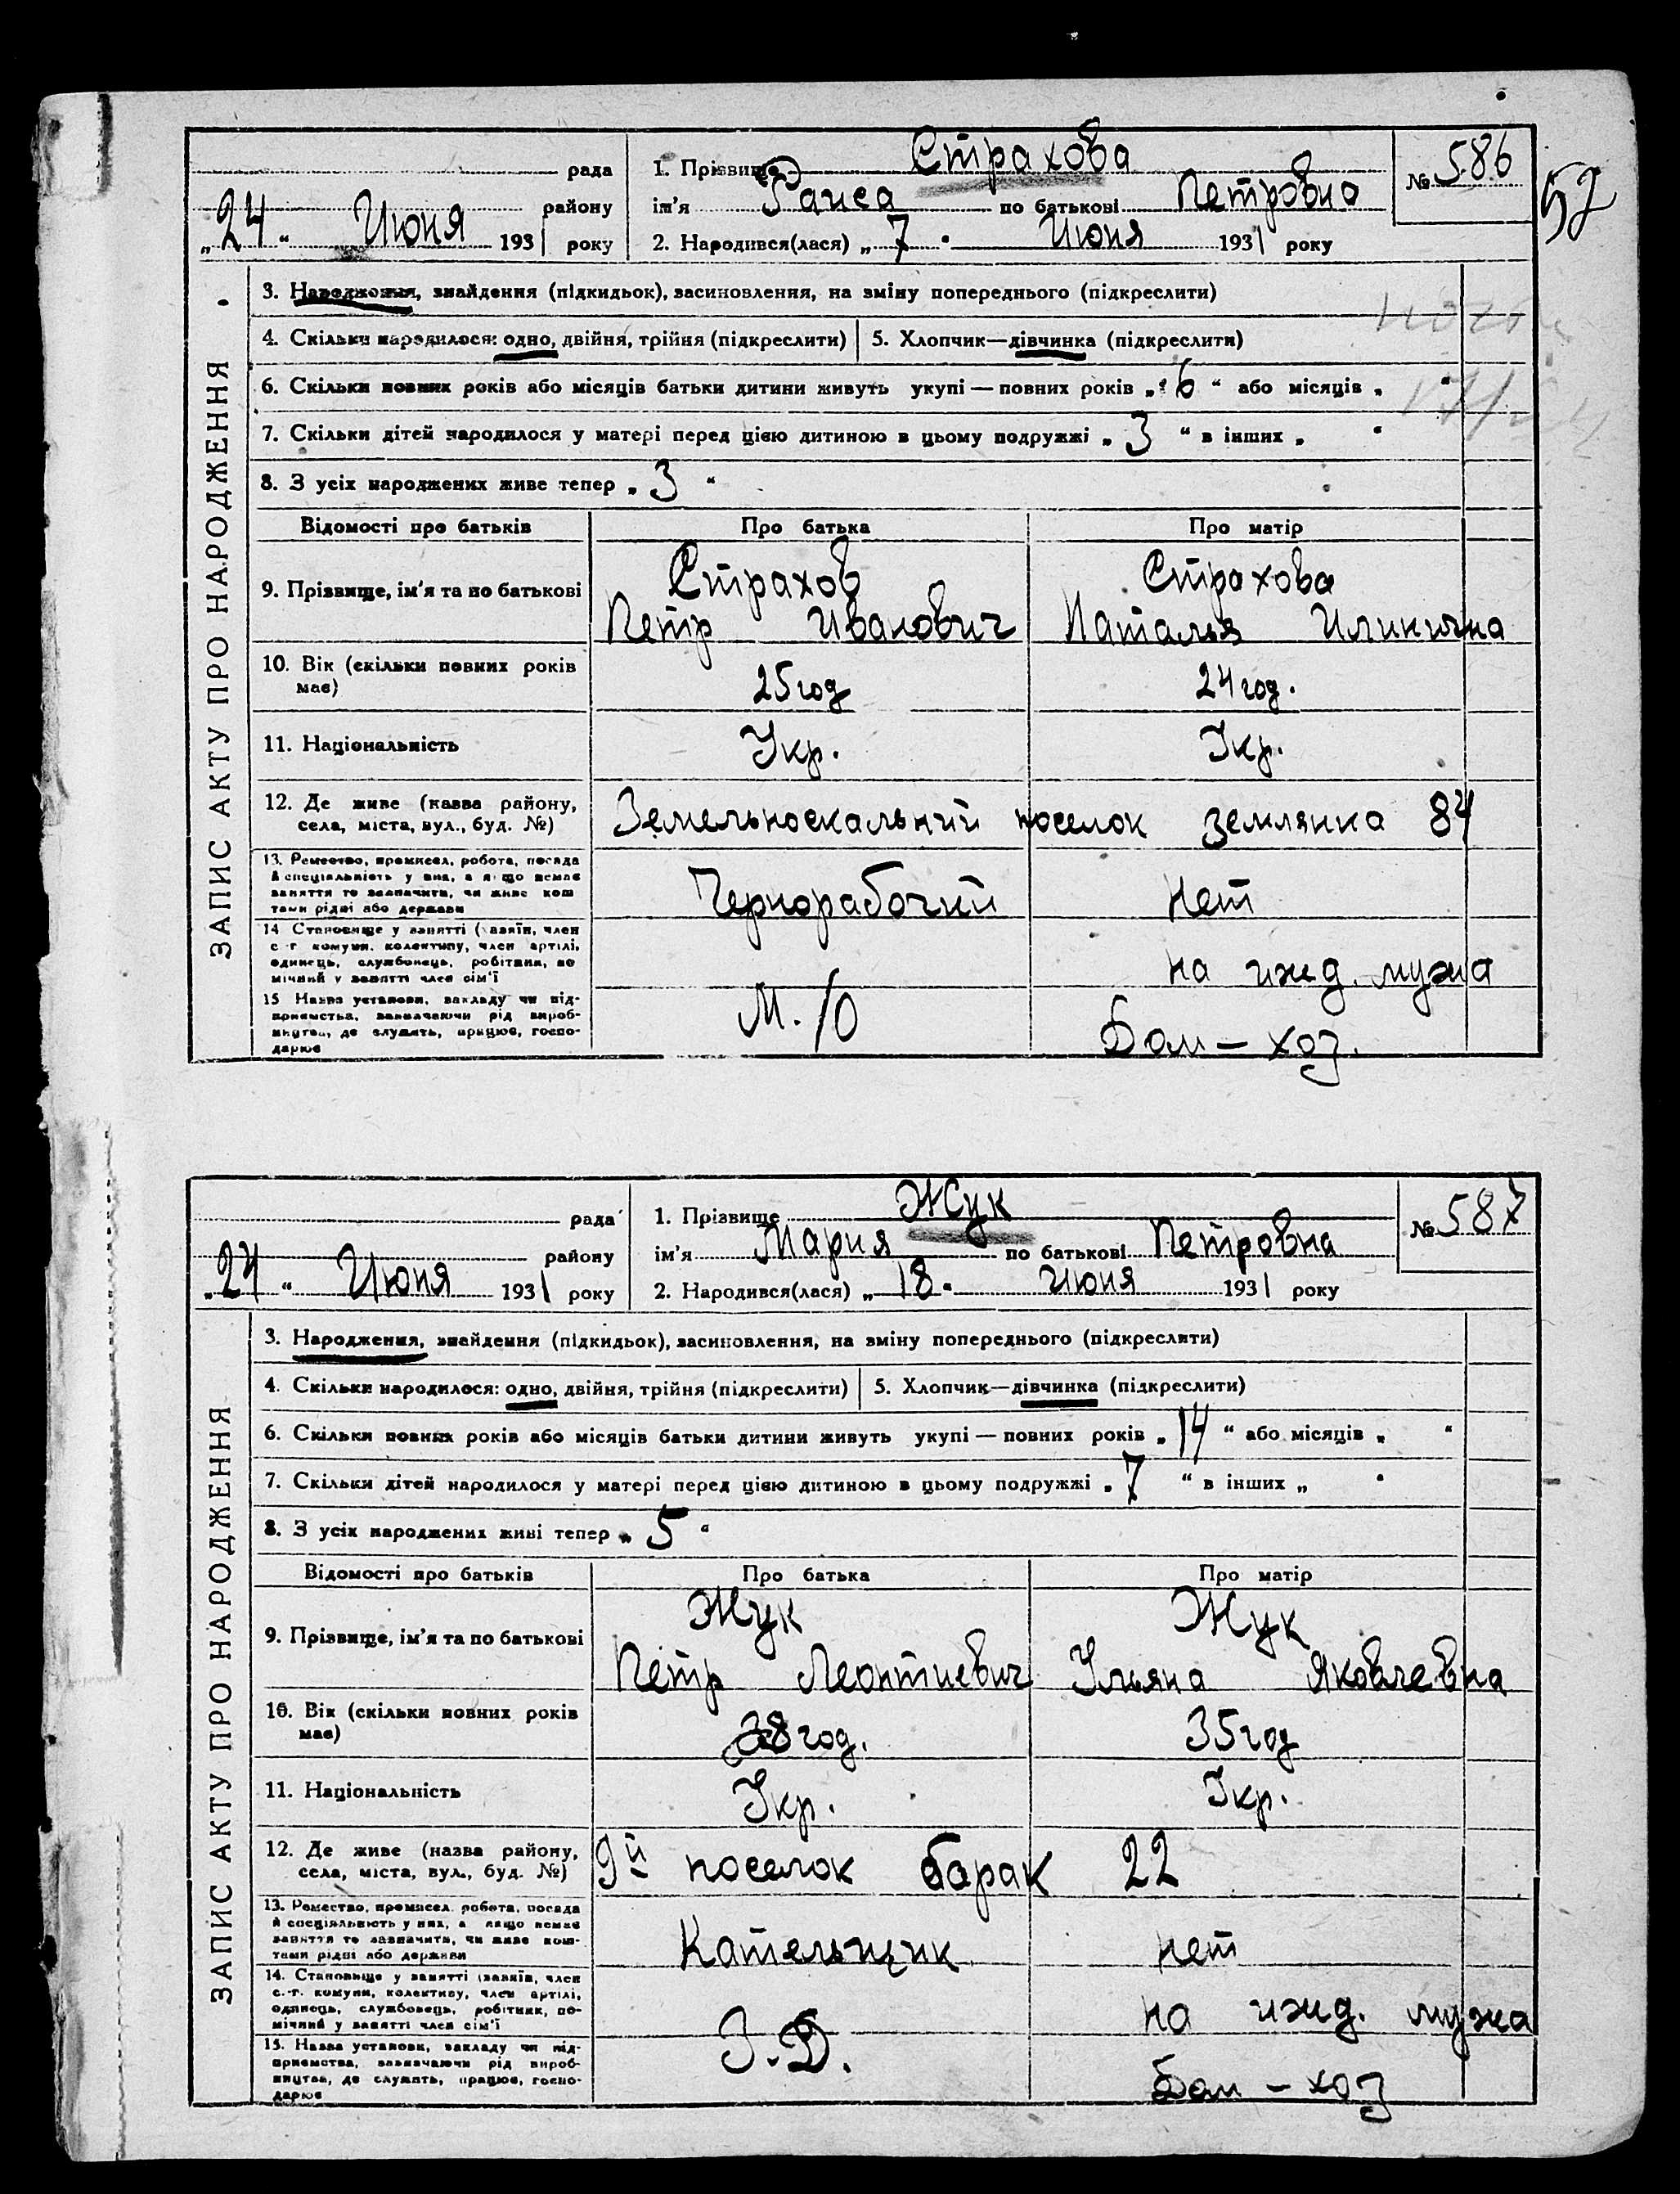 рада
1. Прізвище Страхова
№ 586
52
району
ім'я Раиса по батькові Петровна
„24“ Июня 1931 року
2. Народився(лася) „7“ Июня 1931 року
ЗАПИС АКТУ ПРО НАРОДЖЕННЯ
3. Народження, знайдення (підкидьок), засиновлення, на зміну попереднього (підкреслити)
4. Скільки народилося: одно, двійня, трійня (підкреслити)
5. Хлопчик—дівчинка (підкреслити)
6. Скільки повних років або місяців батьки дитини живуть укупі — повних років „6“ або місяців „ “
7. Скільки дітей народилося у матері перед цією дитиною в цьому подружжі „3“ в інших „ “
8. З усіх народжених живе тепер „3“
Відомості про батьків
Про батька
Про матір
9. Прізвище, ім'я та по батькові
Страхов
Петр Иванович
Страхова
Наталья Илинична
10. Вік (скільки повних років
має)
25 год
24 год.
11. Національність
Укр.
Укр.
12. Де живе (назва району,
села, міста, вул., буд. №)
Земельноскальний поселок землянка 84
13. Ремество, промисел, робота, посада
й спеціяльність у них, а якщо немає
заняття то зазначити, чи живе кош
тами рідні або держави
Чернорабочий
нет
14 Становище у занятті (хазяїн, член
с.-г. комуни, колективу, член артілі,
одинець, службовець, робітник, по
мічний у занятті член сім'ї
на ижд. мужа
15 Назва установи, закладу чи під-
приємства, зазначаючи рід вироб-
ництва, де служить, працює, госпо-
дарює
М. Ю
Дом — хоз.
рада
1. Прізвище Жук
№ 587
району
ім'я Мария по батькові Петровна
„24“ Июня 1931 року
2. Народився(лася) „18“ Июня 1931 року
ЗАПИС АКТУ ПРО НАРОДЖЕННЯ
3. Народження, знайдення (підкидьок), засиновлення, на зміну попереднього (підкреслити)
4. Скільки народилося: одно, двійня, трійня (підкреслити)
5. Хлопчик—дівчинка (підкреслити)
6. Скільки повних років або місяців батьки дитини живуть укупі — повних років „14“ або місяців „ “
7. Скільки дітей народилося у матері перед цією дитиною в цьому подружжі „7“ в інших „ “
8. З усіх народжених живі тепер „5“
Відомості про батьків
Про батька
Про матір
9. Прізвище, ім'я та по батькові
Жук
Петр Леонтиевич
Жук
Ульяна Яковлевна
10. Вік (скільки повних років
має)
38 год.
35 год
11. Національність
Укр.
Укр.
12. Де живе (назва району,
села, міста, вул., буд. №)
9й поселок барак 22
13. Ремество, промисел, робота, посада
й спеціяльність у них, а якщо немає
заняття то зазначити, чи живе кош-
тами рідні або держави
Кательщик
нет
14. Становище у занятті (хазяїн, член
с.-г. комуни, колективу, член артілі,
одинець, службовець, робітник, по-
мічний у занятті член сім'ї
на ижд. мужа
15. Назва установи, закладу чи під-
приємства, зазначаючи рід вироб-
ництва, де служить, працює, госпо-
дарює
З. Д.
Дом — хоз